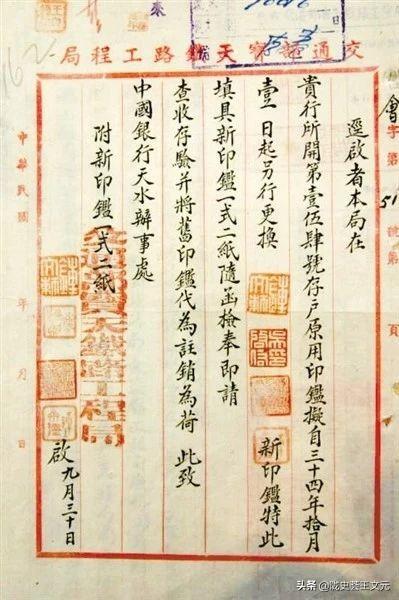 局程工路鐵天寶部通交
會字第51號第 頁
逕啟者本局在
貴行所開第壹伍肆號存戶原用印鑑擬自三十四年拾月
壹日起另行更換 新印鑑特此
填具新印鑑一式二紙隨函檢奉即請
查收存驗并將舊印鑑代為註銷為荷 此致
中國銀行天水辦事處
附新印鑑一式二紙
啟九月三十日
中華民國 年 月 日
162
头条 @陇史陇王文元